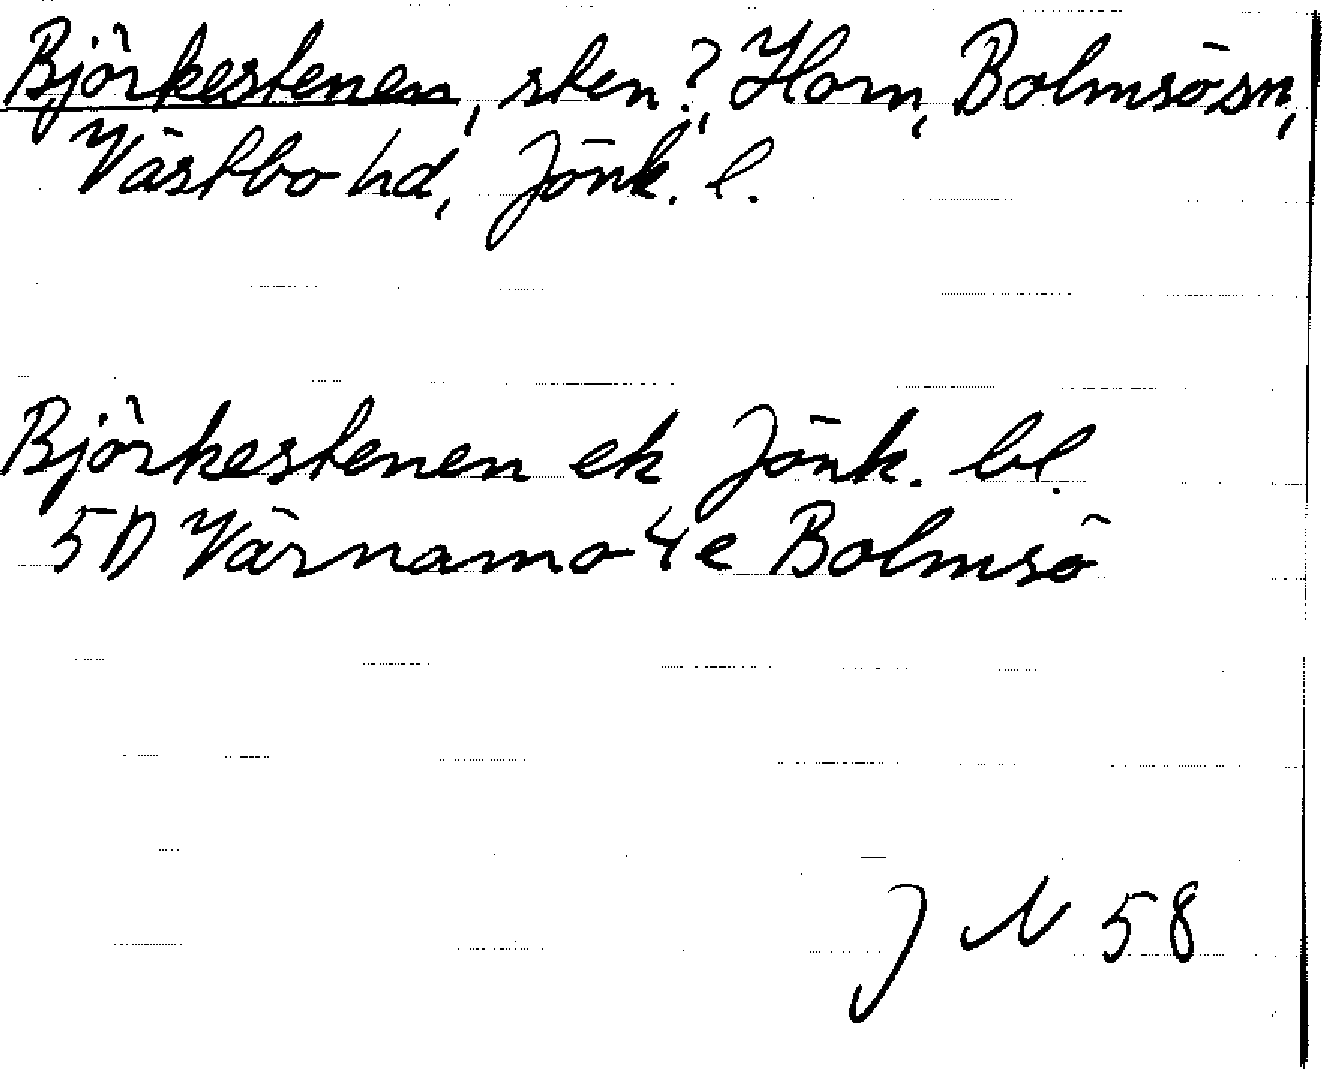 Björkestenen, sten?, Horn, Bolmsö sn,
Västbo hd, Jönk. l.
Björkestenen ek Jönk. bl.
5D Värnamo 4e Bolmsö
J N 58